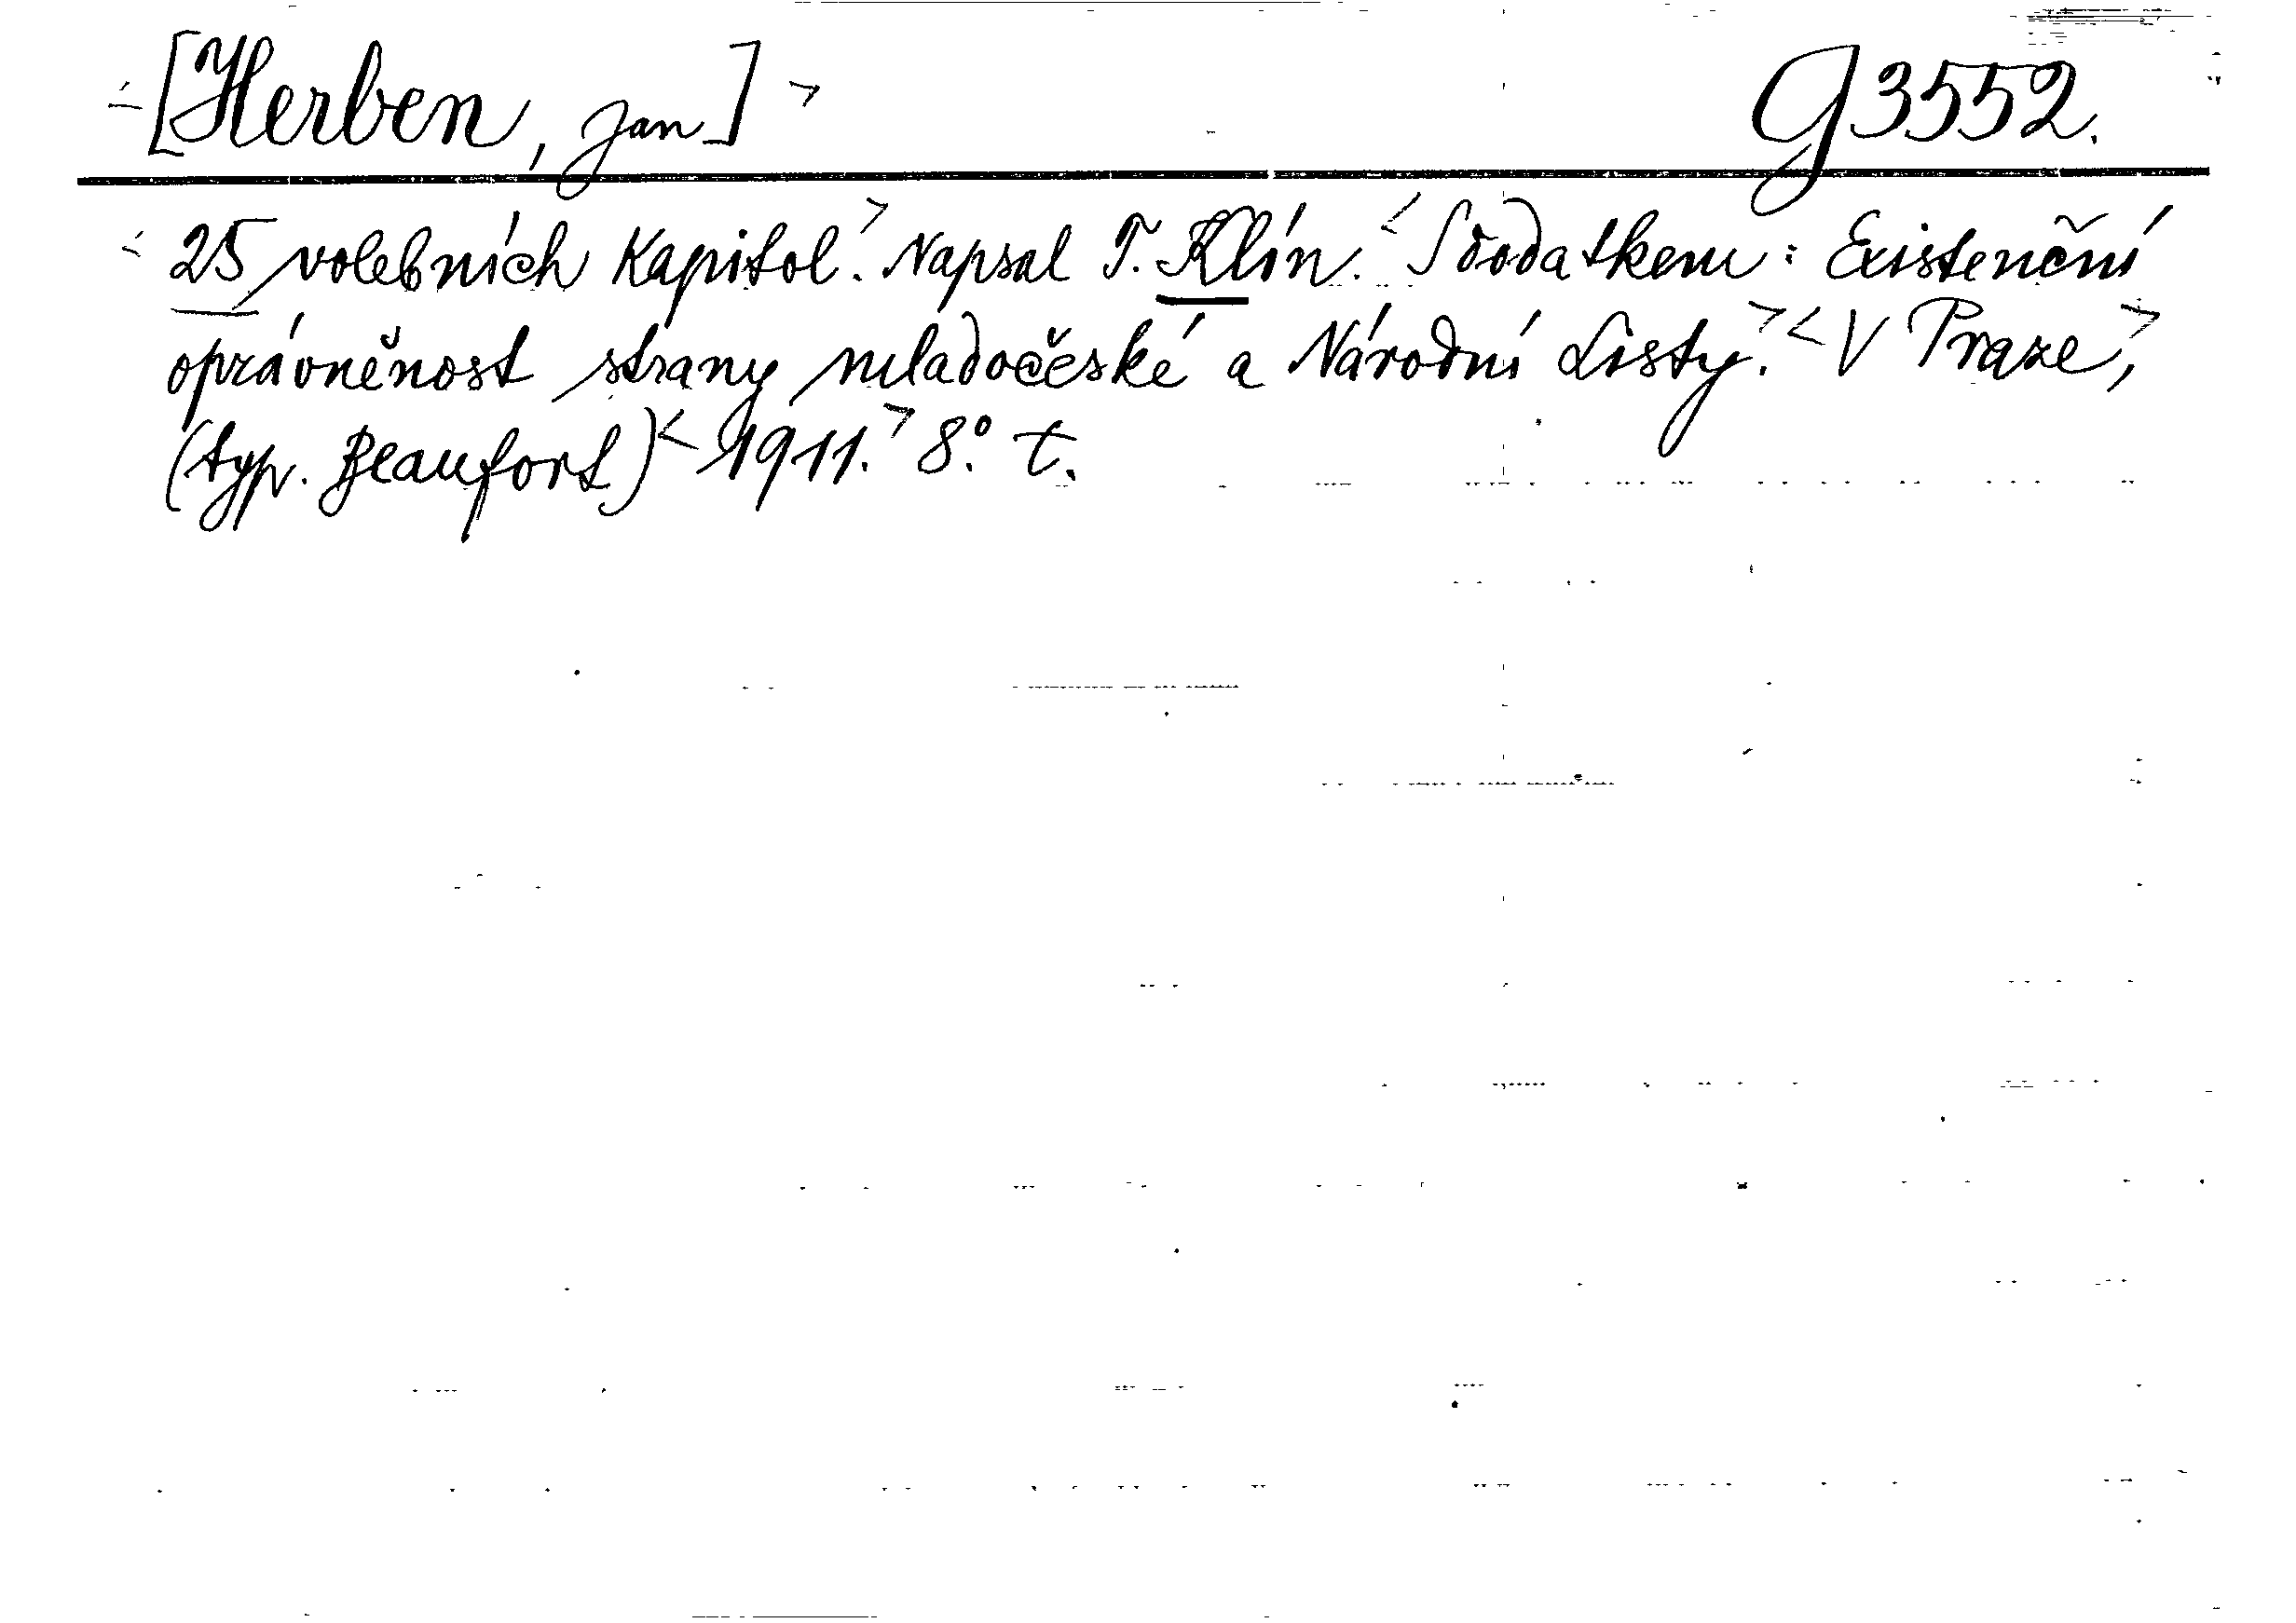 <[Herben, Jan]> G 3552.
<25 volebních kapitol.> Napsal T. Klín. <S dodatkem: Existenční
oprávněnost strany mladočeské a Národní Listy.> <V Praze,>
(typ. Beaufort) <1911.> 8.° t.